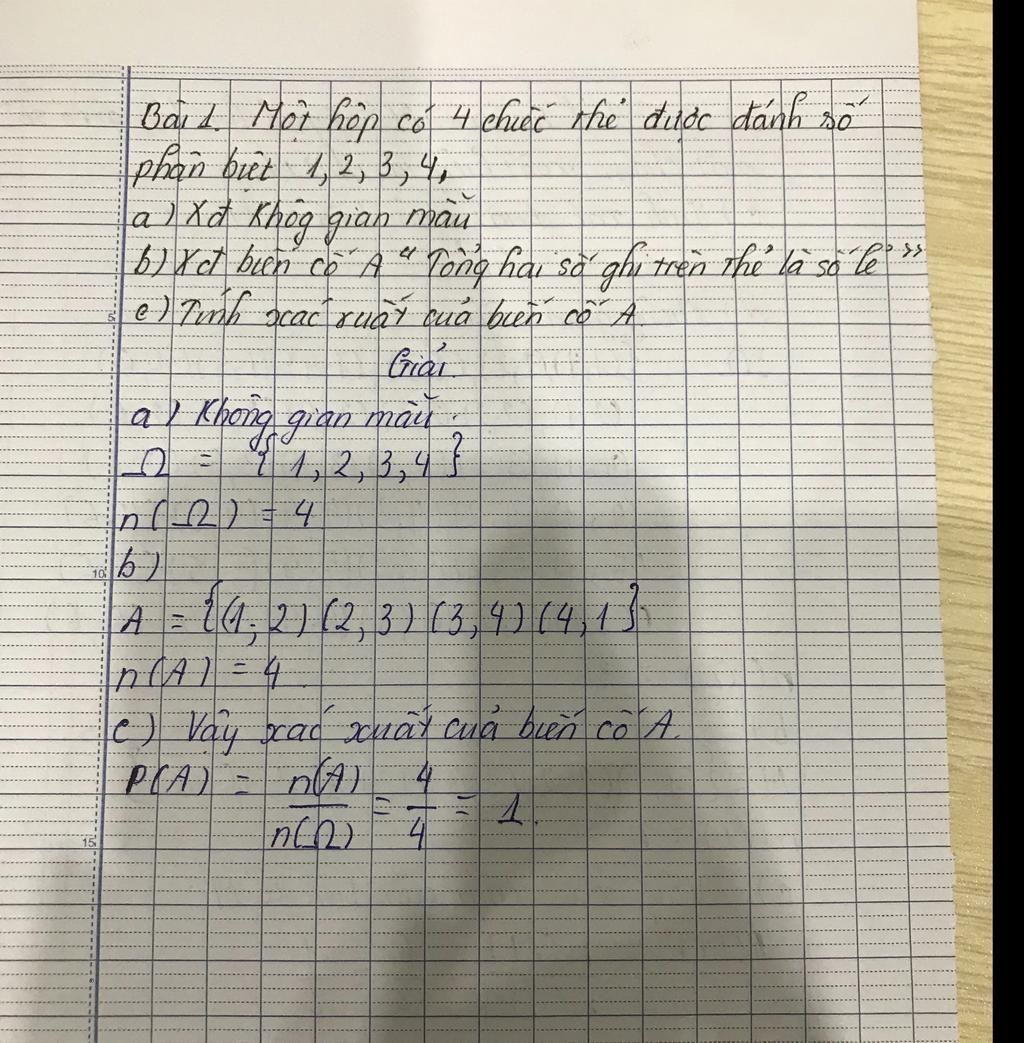 Bài 1. Một hộp có 4 chiếc thẻ được đánh số
phân biệt 1, 2, 3, 4,
a) Xđ Khôg gian mẫu
b) Xđ biến cố A "Tổng hai số ghi trên thẻ là số lẻ"
c) Tính xác xuất của biến cố A.
Giải.
a) Không gian mẫu.
Ω = { 1, 2, 3, 4 }
n(Ω) = 4
10 b)
A = {(1; 2) (2, 3) (3, 4) (4, 1}
n(A) = 4
c) Vậy xác xuất của biến cố A.
P(A) = n(A)/n(Ω) = 4/4 = 1.
5
15